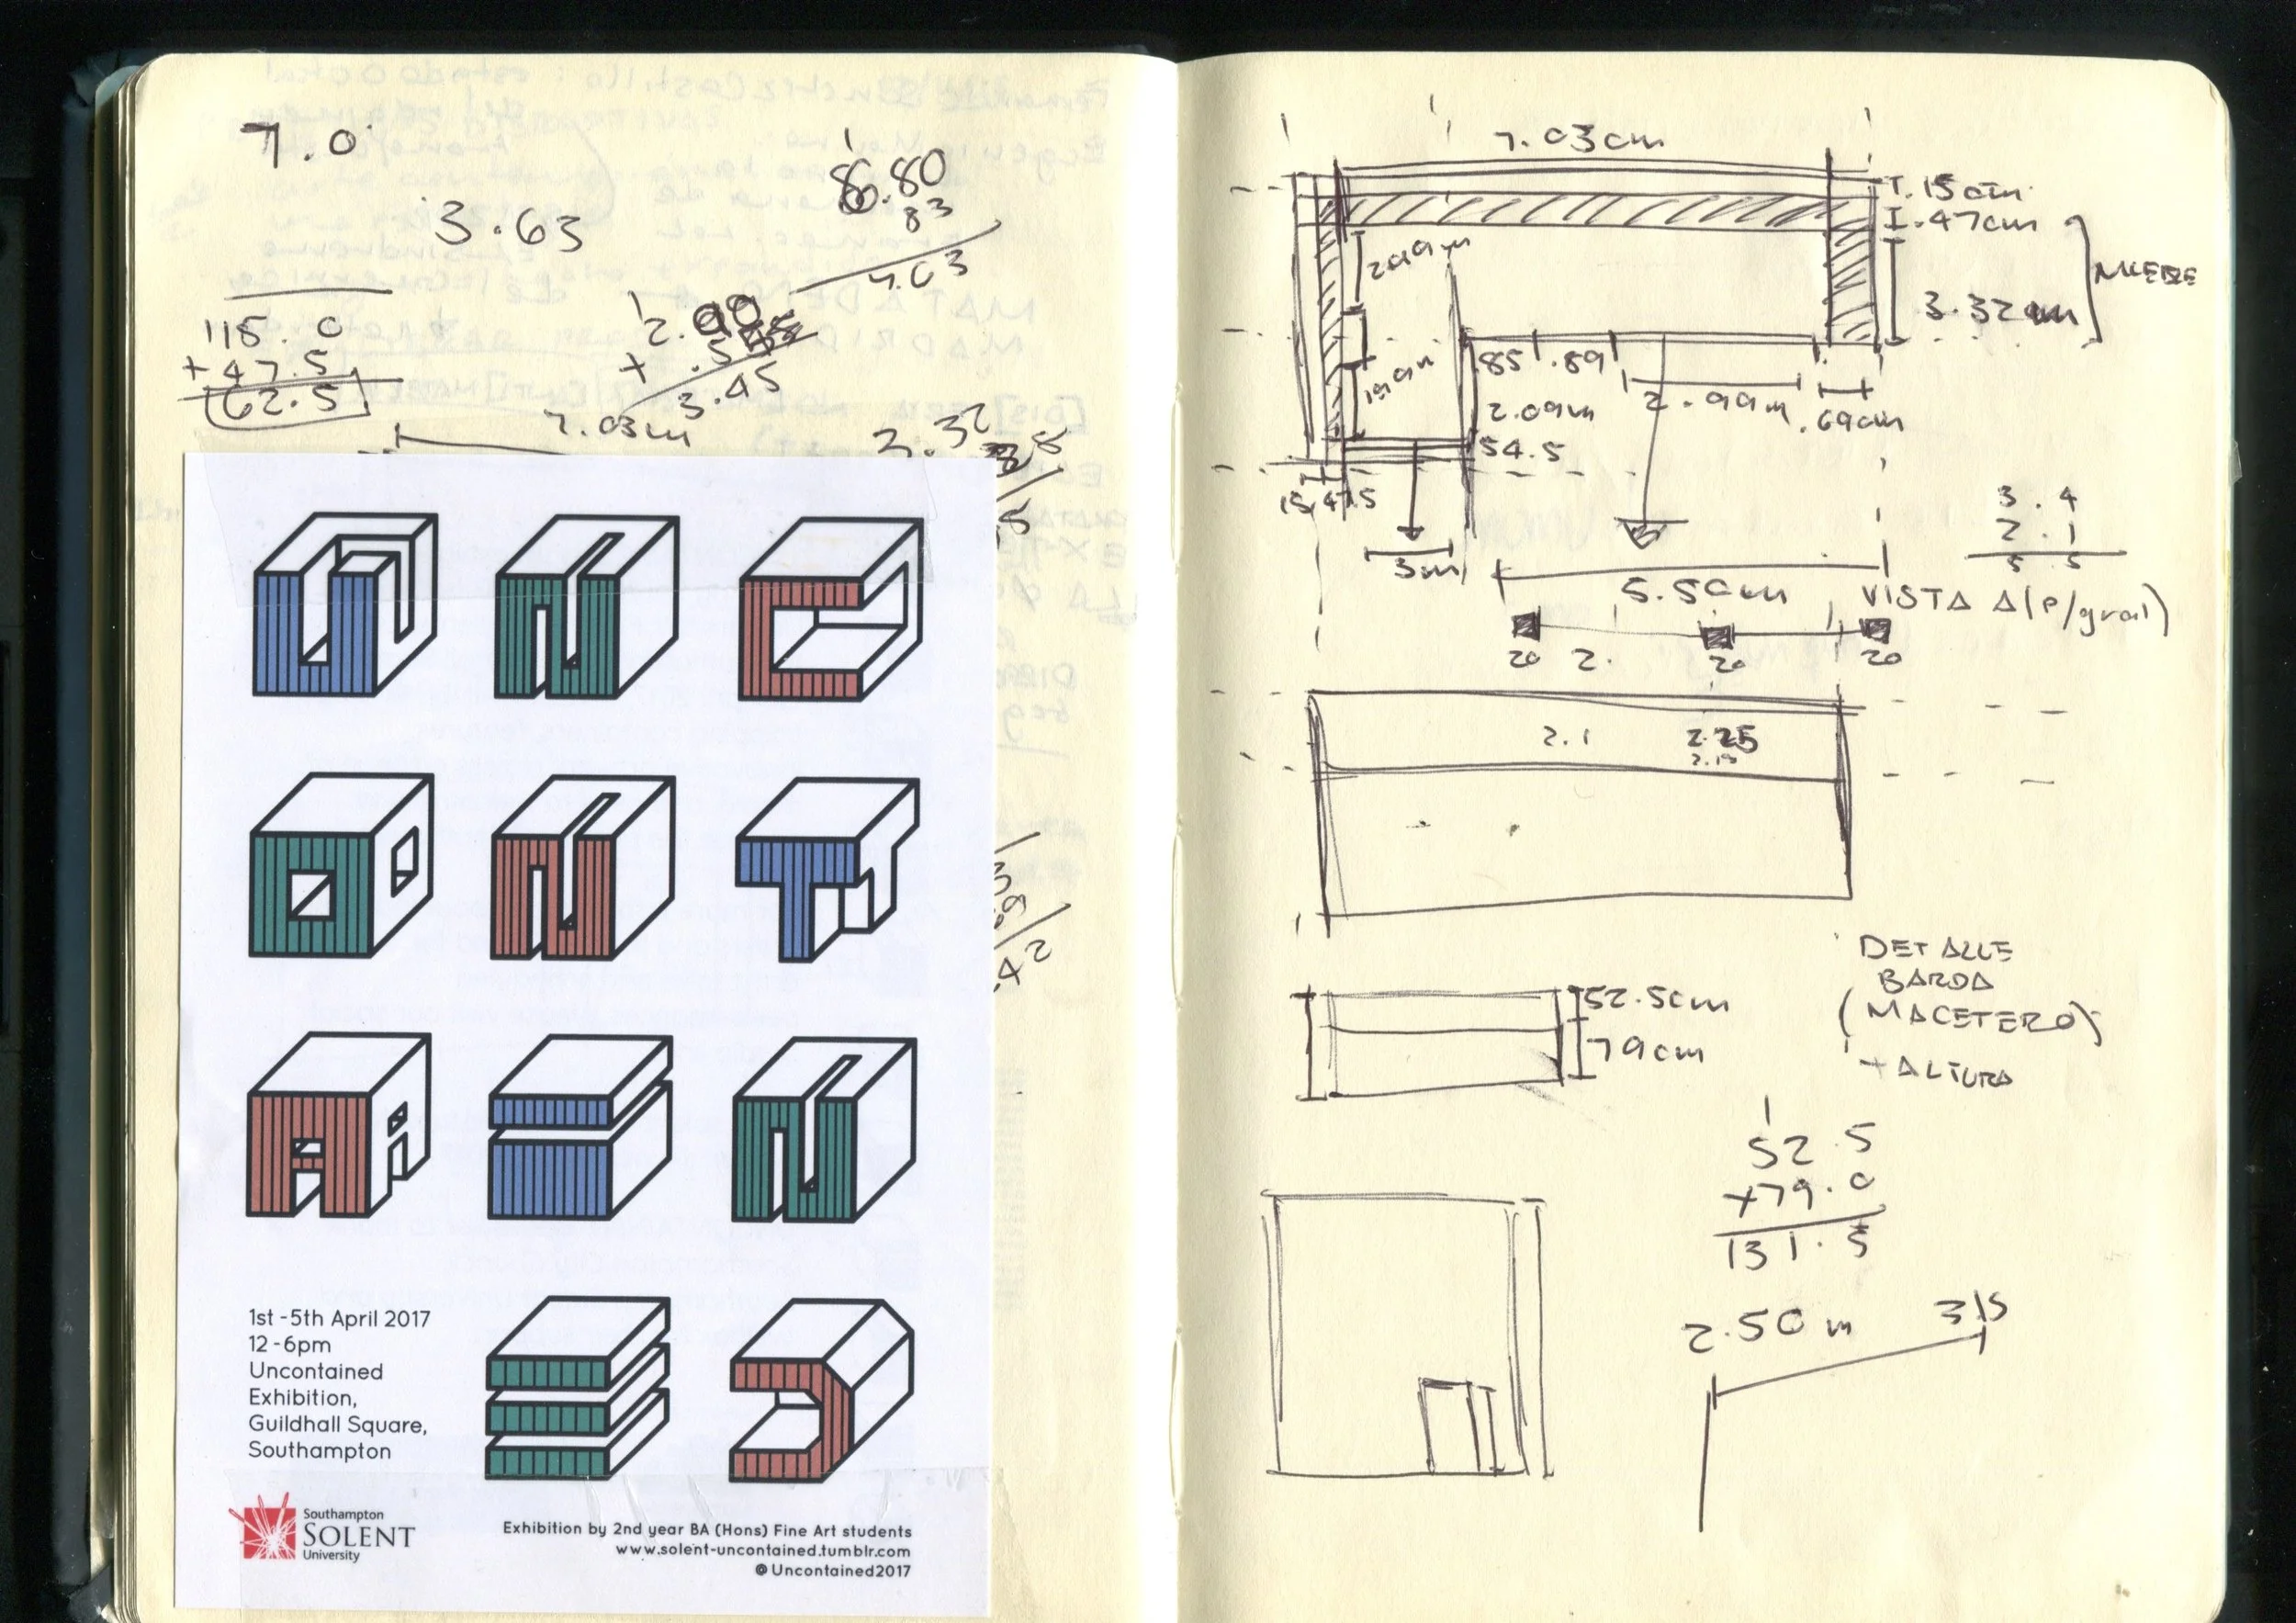 7.0
3.63
6.80
83
7.03
115.0
+ 47.5
62.5
2.90
+ .55
3.45
7.03m
3.32
U N C
O N T
A I N
E D
1st - 5th April 2017
12 - 6pm
Uncontained
Exhibition,
Guildhall Square,
Southampton
Southampton
SOLENT
University
Exhibition by 2nd year BA (Hons) Fine Art students
www.solent-uncontained.tumblr.com
@Uncontained2017
7.03cm
.15cm
.47cm
3.32cm
.85 .89
2.99m
.69cm
2.09m
54.5
15 47.5
3m
5.50cm
3.4
2.1
5 5
VISTA A (P/gral)
20 2. 20 20
2.1 2.25
2.15
52.5cm
79cm
DETALLE
BARDA
(MACETERO)
+ ALTURA
52.5
+79.0
131.5
2.50 m 315